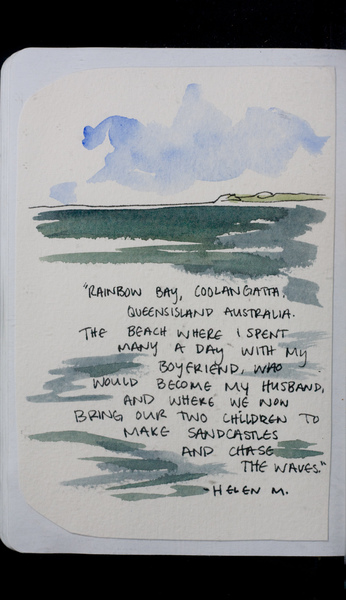 "RAINBOW BAY, COOLANGATTA.
QUEENSISLAND AUSTRALIA.
THE BEACH WHERE I SPENT
MANY A DAY WITH MY
BOYFRIEND, WHO
WOULD BECOME MY HUSBAND,
AND WHERE WE NOW
BRING OUR TWO CHILDREN TO
MAKE SANDCASTLES
AND CHASE
THE WAVES."
-HELEN M.